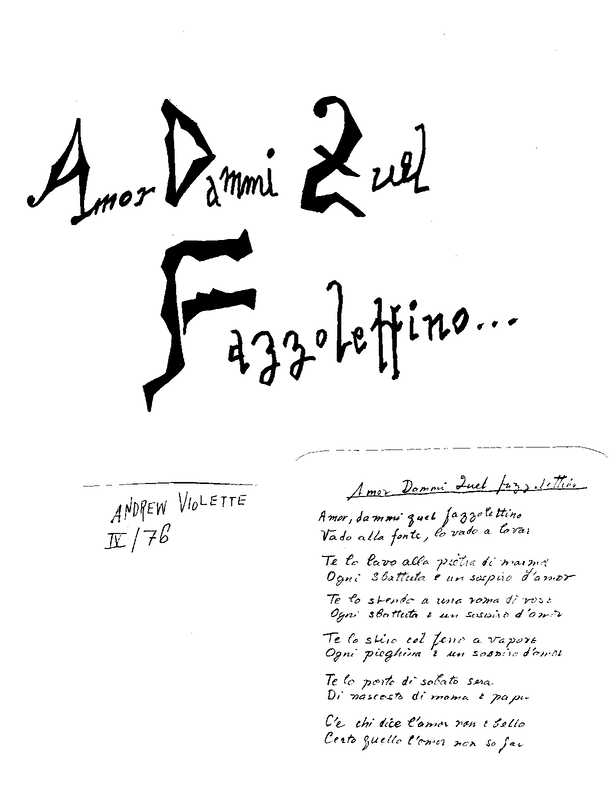 Amor Dammi Quel
Fazzolettino...
ANDREW VIOLETTE
IV/76
Amor Dammi Quel fazzolettino
Amor, dammi quel fazzolettino
Vado alla fonte, lo vado a lavar
Te lo lavo alla pietra di marmo
Ogni sbattuta è un sospiro d'amor
Te lo stendo a una rama di rose
Ogni sbattuta è un sospiro d'amor
Te lo stiro col ferro a vapore
Ogni pieghina è un sospiro d'amor
Te lo porto di sabato sera
Di nascosto di mama e papa
C'e chi dice l'amor non è bello
Certo quello l'amor non so far